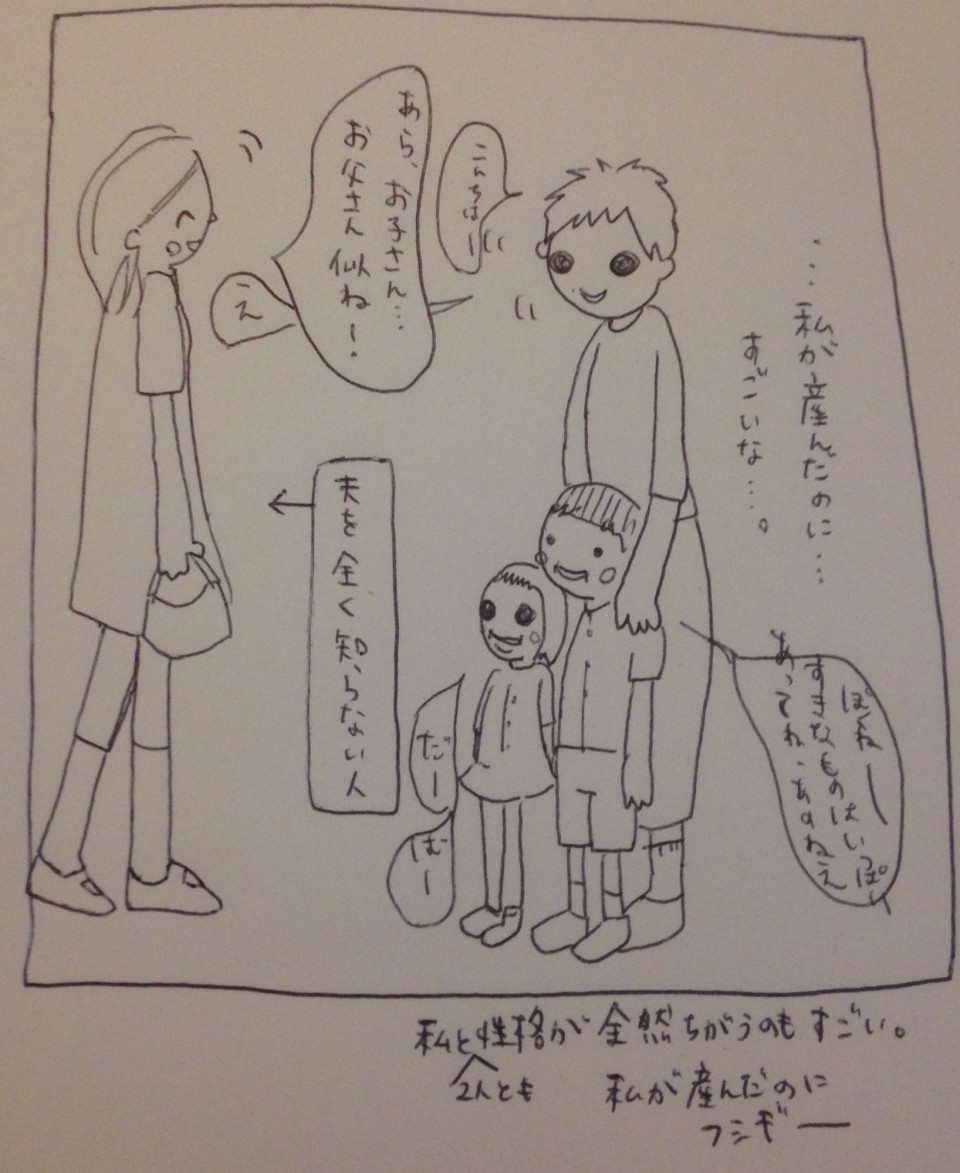 ・・・私が産んだのに・・・
すごいな・・・。
こんちはーい
あら、お子さん…
お父さん似ね！
え
夫を全く知らない人
ぽくねー
すきなものはいっぱい
あってね、あのねえ
だー
ばー
私と性格が全然ちがうのもすごい。
2人とも
私が産んだのに
フシギー